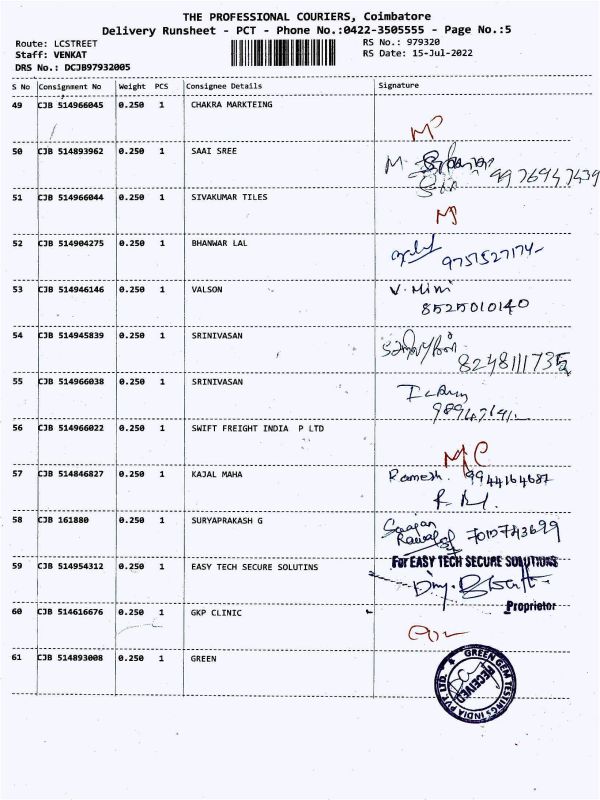 THE PROFESSIONAL COURIERS, Coimbatore
Delivery Runsheet - PCT - Phone No.:0422-3505555 - Page No.:5
Route: LCSTREET RS No.: 979320
Staff: VENKAT RS Date: 15-Jul-2022
DRS No.: DCJB97932005
S No Consignment No Weight PCS Consignee Details Signature
49 CJB 514966045 0.250 1 CHAKRA MARKTEING
50 CJB 514893962 0.250 1 SAAI SREE
9976947439
51 CJB 514966044 0.250 1 SIVAKUMAR TILES
52 CJB 514904275 0.250 1 BHANWAR LAL
9751527174
53 CJB 514946146 0.250 1 VALSON V. Mini
8525010140
54 CJB 514945839 0.250 1 SRINIVASAN
8248111735
55 CJB 514966038 0.250 1 SRINIVASAN
56 CJB 514966022 0.250 1 SWIFT FREIGHT INDIA P LTD
57 CJB 514846827 0.250 1 KAJAL MAHA Ramesh. 9944164687
58 CJB 161880 0.250 1 SURYAPRAKASH G Saajan
Rawal
59 CJB 514954312 0.250 1 EASY TECH SECURE SOLUTINS For EASY TECH SECURE SOLUTIONS
Proprietor
60 CJB 514616676 0.250 1 GKP CLINIC
61 CJB 514893008 0.250 1 GREEN
GREEN GEM TESTINGS INDIA PVT. LTD.
RECEIVED